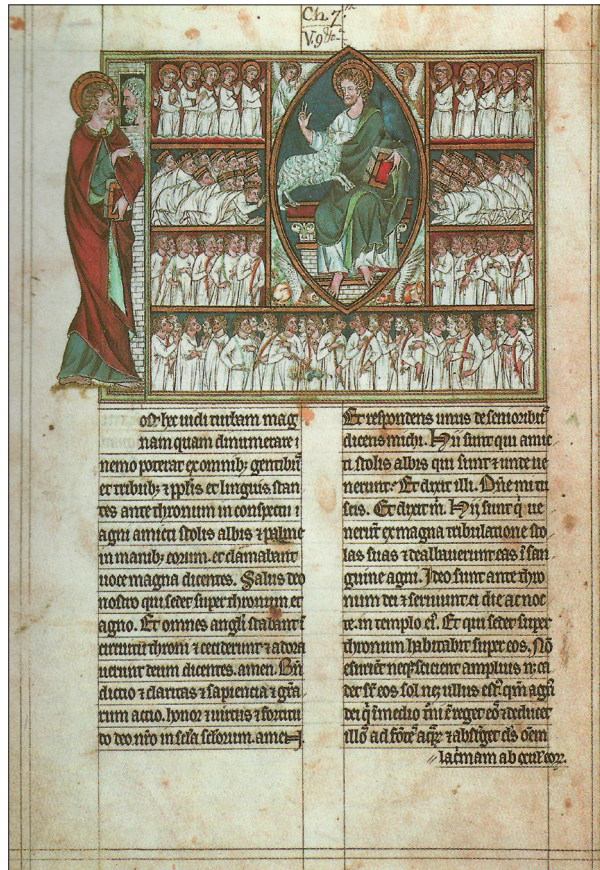 Ch. 7.
V. 9
ost hec uidi turbam mag
nam quam dinumerare
nemo poterat ex omnibꝫ gentibꝰ
et tribubꝫ ⁊ pplis et linguis stan
tes ante thronum in conspectu
agni amicti stolis albis ⁊ palme
in manibꝫ eorum. et clamabant
uoce magna dicentes. Salus deo
nostro qui sedet super thronum et
agno. Et omnes angli stabant
circuitu throni ⁊ ceciderunt ⁊ adora
uerunt deum dicentes. amen. Bn̄
dictio ⁊ claritas ⁊ sapiencia ⁊ gr̄a
rum actio. honor ⁊ uirtus ⁊ fortitu
do deo nr̄o in scl̄a scl̄orum. amen
Et respondens unus de senioribꝰ
dicens michi. Hii sunt qui amic
ti stolis albis qui sunt ⁊ unde ue
nerunt. Et dixit illi. Dn̄e mi tu
scis. Et dixit m̄. Hii sunt q̄ ue
nerūt ex magna tribulatione sto
las suas ⁊ dealbauerunt eas ī san
guine agni. Ideo sunt ante thro
num dei ⁊ seruiunt ei die ac noc
te. in templo eꝰ. Et qui sedet super
thronum habitabit super eos. Nō
esurient neqꝫ sicient amplius
sol ullus
dei
illos ad
lacrimam ab